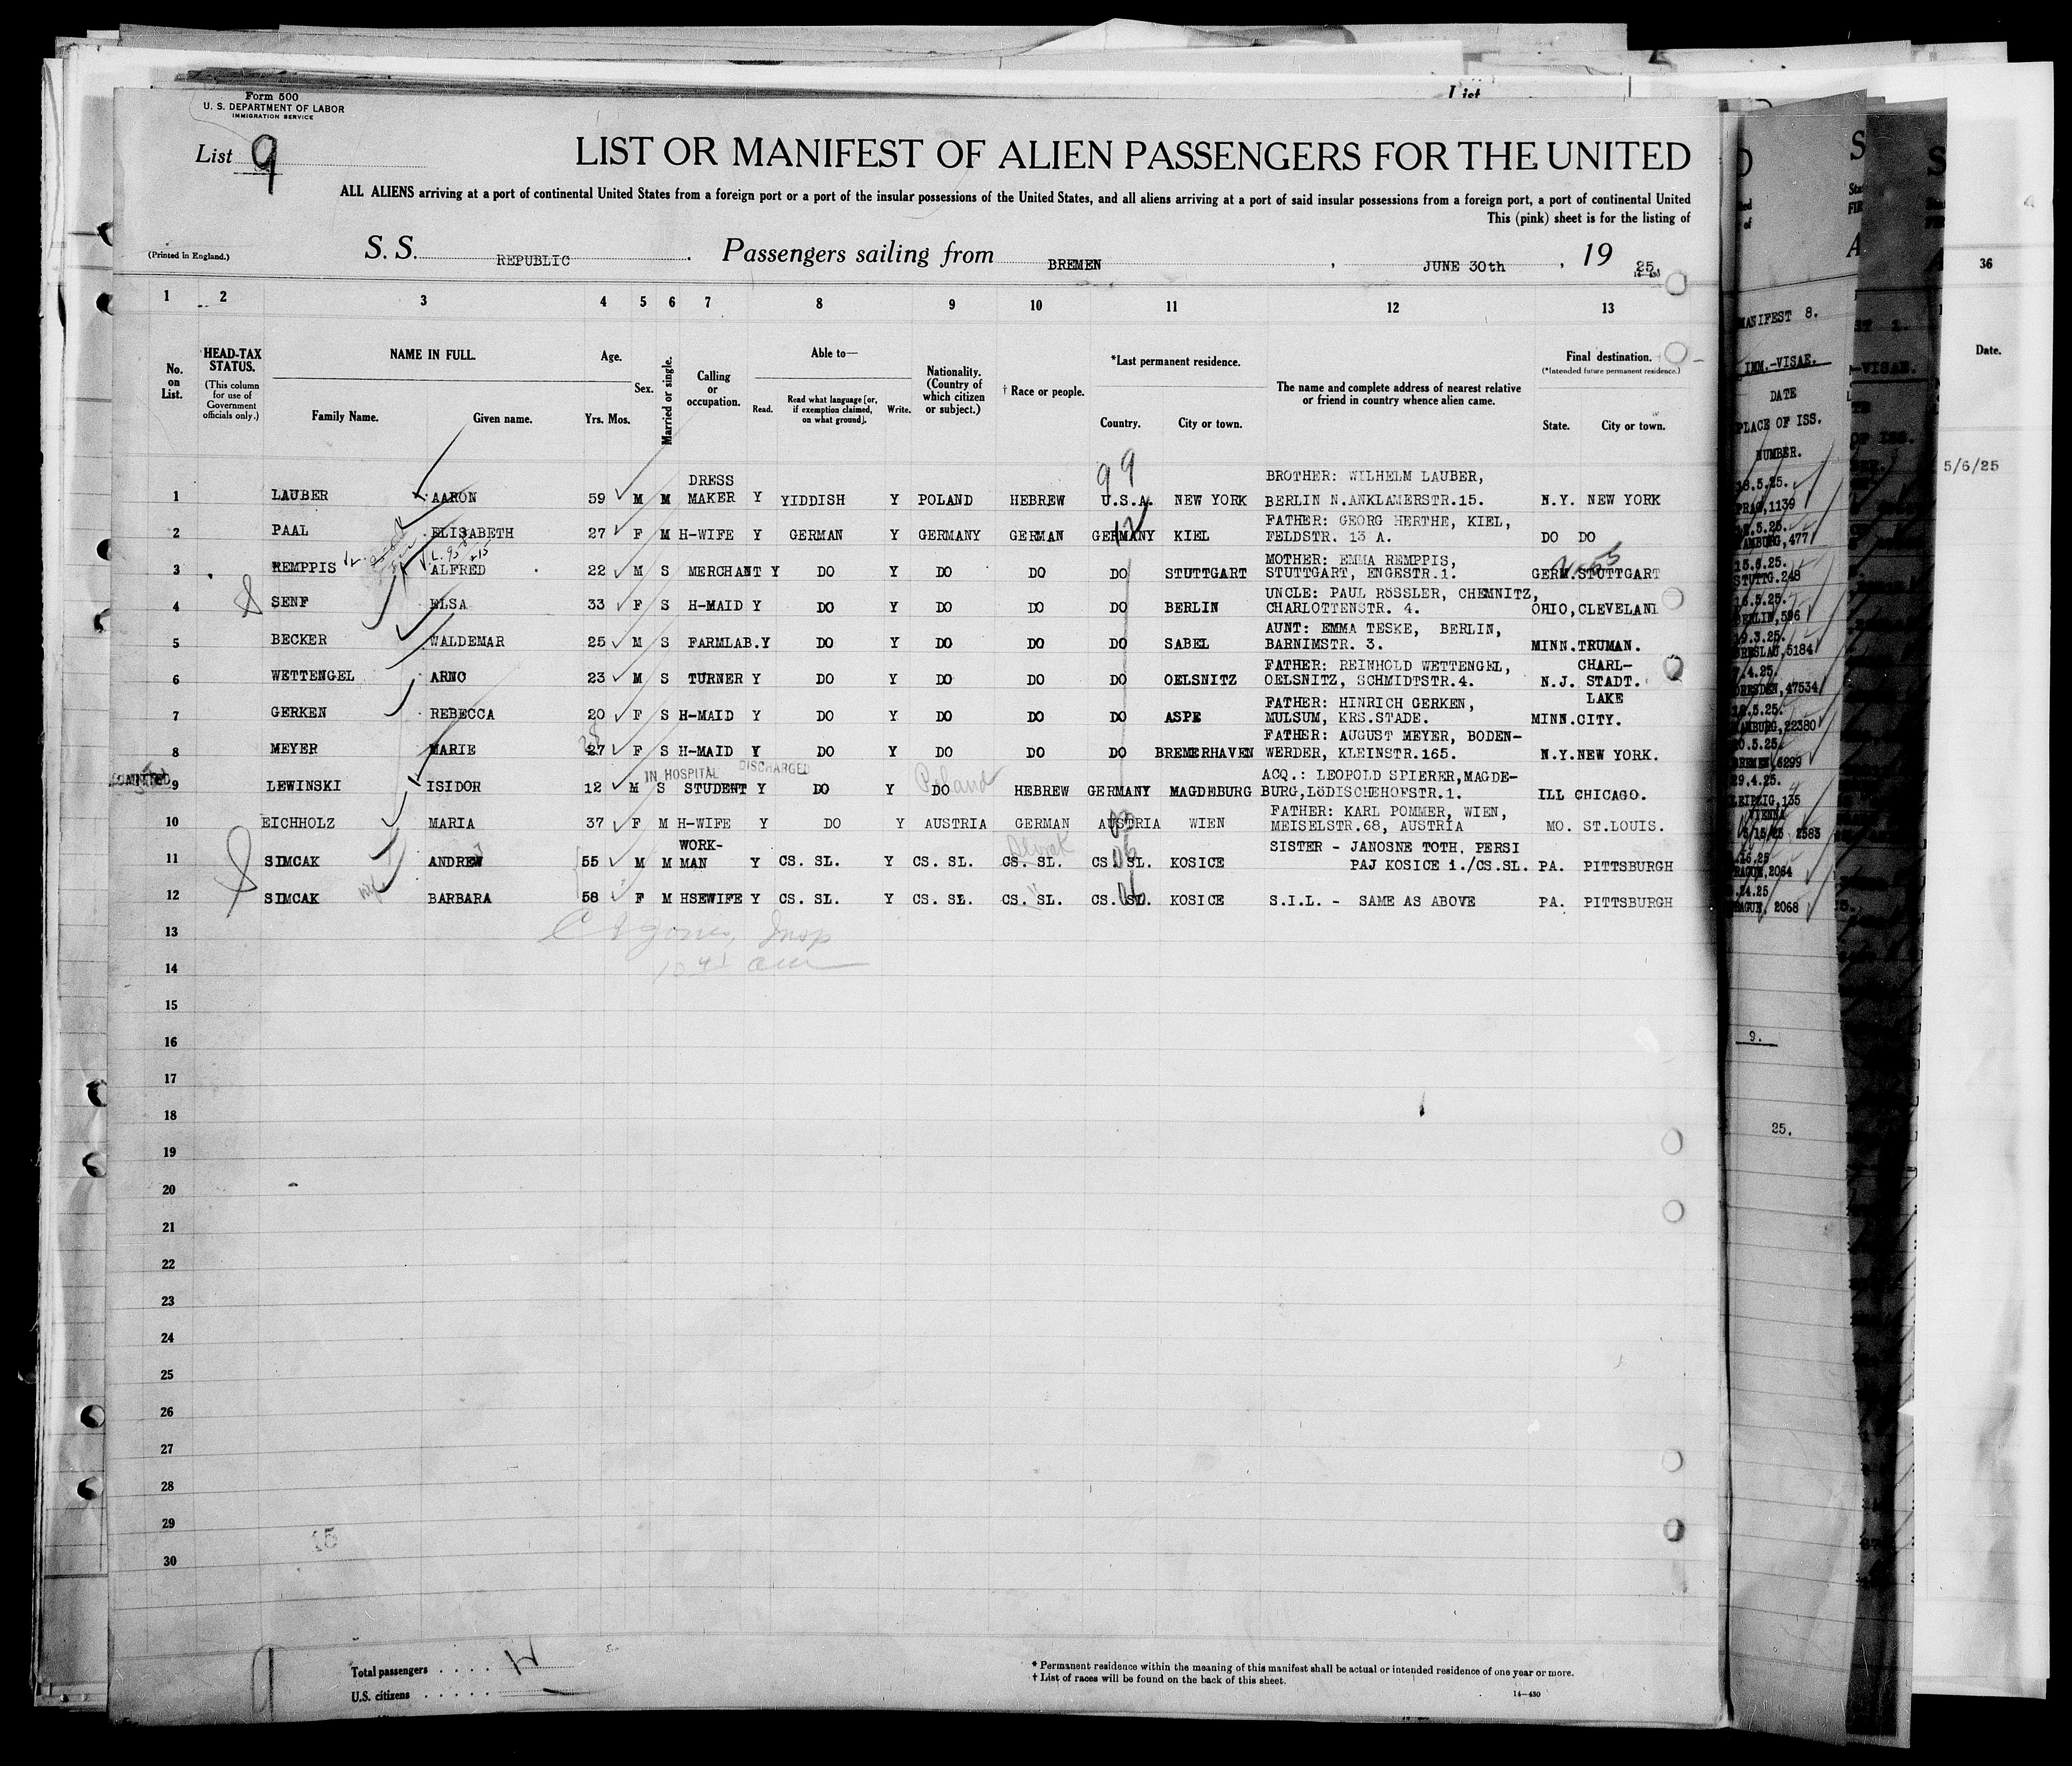 List
Form 500
U. S. DEPARTMENT OF LABOR
IMMIGRATION SERVICE
List 9
LIST OR MANIFEST OF ALIEN PASSENGERS FOR THE UNITED
ALL ALIENS arriving at a port of continental United States from a foreign port or a port of the insular possessions of the United States, and all aliens arriving at a port of said insular possessions from a foreign port, a port of continental United
This (pink) sheet is for the listing of
(Printed in England.) S. S. REPUBLIC. Passengers sailing from BREMEN, JUNE 30th, 19 25
1 2 3 4 5 6 7 8 9 10 11 12 13
No. on List.
HEAD-TAX STATUS.
(This column for use of Government officials only.)
NAME IN FULL.
Family Name. Given name.
Age.
Yrs. Mos.
Sex.
Married or single.
Calling or occupation.
Able to—
Read. Read what language [or, if exemption claimed, on what ground]. Write.
Nationality. (Country of which citizen or subject.)
† Race or people.
*Last permanent residence.
Country. City or town.
The name and complete address of nearest relative or friend in country whence alien came.
Final destination.
(*Intended future permanent residence.)
State. City or town.
99
DRESS BROTHER: WILHELM LAUBER,
1 LAUBER AARON 59 M M MAKER Y YIDDISH Y POLAND HEBREW U.S.A. NEW YORK BERLIN N.ANKLAMERSTR.15. N.Y. NEW YORK
FATHER: GEORG HERTHE, KIEL,
2 PAAL ELISABETH 27 F M H-WIFE Y GERMAN Y GERMANY GERMAN GERMANY KIEL FELDSTR. 13 A. DO DO
MOTHER: EMMA REMPPIS,
3 REMPPIS ALFRED 22 M S MERCHANT Y DO Y DO DO DO STUTTGART STUTTGART, ENGESTR.1. GERM.STUTTGART
UNCLE: PAUL RÖSSLER, CHEMNITZ,
4 SENF ELSA 33 F S H-MAID Y DO Y DO DO DO BERLIN CHARLOTTENSTR. 4. OHIO,CLEVELAND
AUNT: EMMA TESKE, BERLIN,
5 BECKER WALDEMAR 25 M S FARMLAB.Y DO Y DO DO DO SABEL BARNIMSTR. 3. MINN.TRUMAN.
FATHER: REINHOLD WETTENGEL, CHARL-
6 WETTENGEL ARNO 23 M S TURNER Y DO Y DO DO DO OELSNITZ OELSNITZ, SCHMIDTSTR.4. N.J. STADT.
FATHER: HINRICH GERKEN, LAKE
7 GERKEN REBECCA 20 F S H-MAID Y DO Y DO DO DO ASPE MULSUM, KRS.STADE. MINN.CITY.
FATHER: AUGUST MEYER, BODEN-
8 MEYER MARIE 27 F S H-MAID Y DO Y DO DO DO BREMERHAVEN WERDER, KLEINSTR.165. N.Y.NEW YORK.
IN HOSPITAL DISCHARGED Poland ACQ.: LEOPOLD SPIERER,MAGDE-
ADMITTED 9 LEWINSKI ISIDOR 12 M S STUDENT Y DO Y DO HEBREW GERMANY MAGDEBURG BURG,LÖDISCHEHOFSTR.1. ILL CHICAGO.
FATHER: KARL POMMER, WIEN,
10 EICHHOLZ MARIA 37 F M H-WIFE Y DO Y AUSTRIA GERMAN AUSTRIA WIEN MEISELSTR.68, AUSTRIA MO. ST.LOUIS.
WORK- Slovak SISTER - JANOSNE TOTH, PERSI
11 SIMCAK ANDREW 55 M M MAN Y CS. SL. Y CS. SL. CS. SL. CS. SL. KOSICE PAJ KOSICE i./CS.SL. PA. PITTSBURGH
12 SIMCAK wife BARBARA 58 F M HSEWIFE Y CS. SL. Y CS. SL. CS. SL. CS. SL. KOSICE S.I.L. - SAME AS ABOVE PA. PITTSBURGH
13
14
15
16
17
18
19
20
21
22
23
24
25
26
27
28
29
30
15
Total passengers . . . . 12
U.S. citizens . . . . .
* Permanent residence within the meaning of this manifest shall be actual or intended residence of one year or more.
† List of races will be found on the back of this sheet.
14—430
MANIFEST 8.
IMM.-VISAE.
DATE
PLACE OF ISS.
NUMBER.
18.5.25.
PRAG,1139
HAMBURG,477
15.6.25.
STUTTG.248
16.5.25.
BERLIN,596
19.3.25.
BRESLAU,5184
7.4.25.
DRESDEN,47534
HAMBURG,22380
BREMEN,6299
29.4.25.
LEIPZIG,135
VIENNA
5/15/25 2583
PRAGUE,2064
PRAGUE, 2068
9.
25.
36
Date.
5/6/25